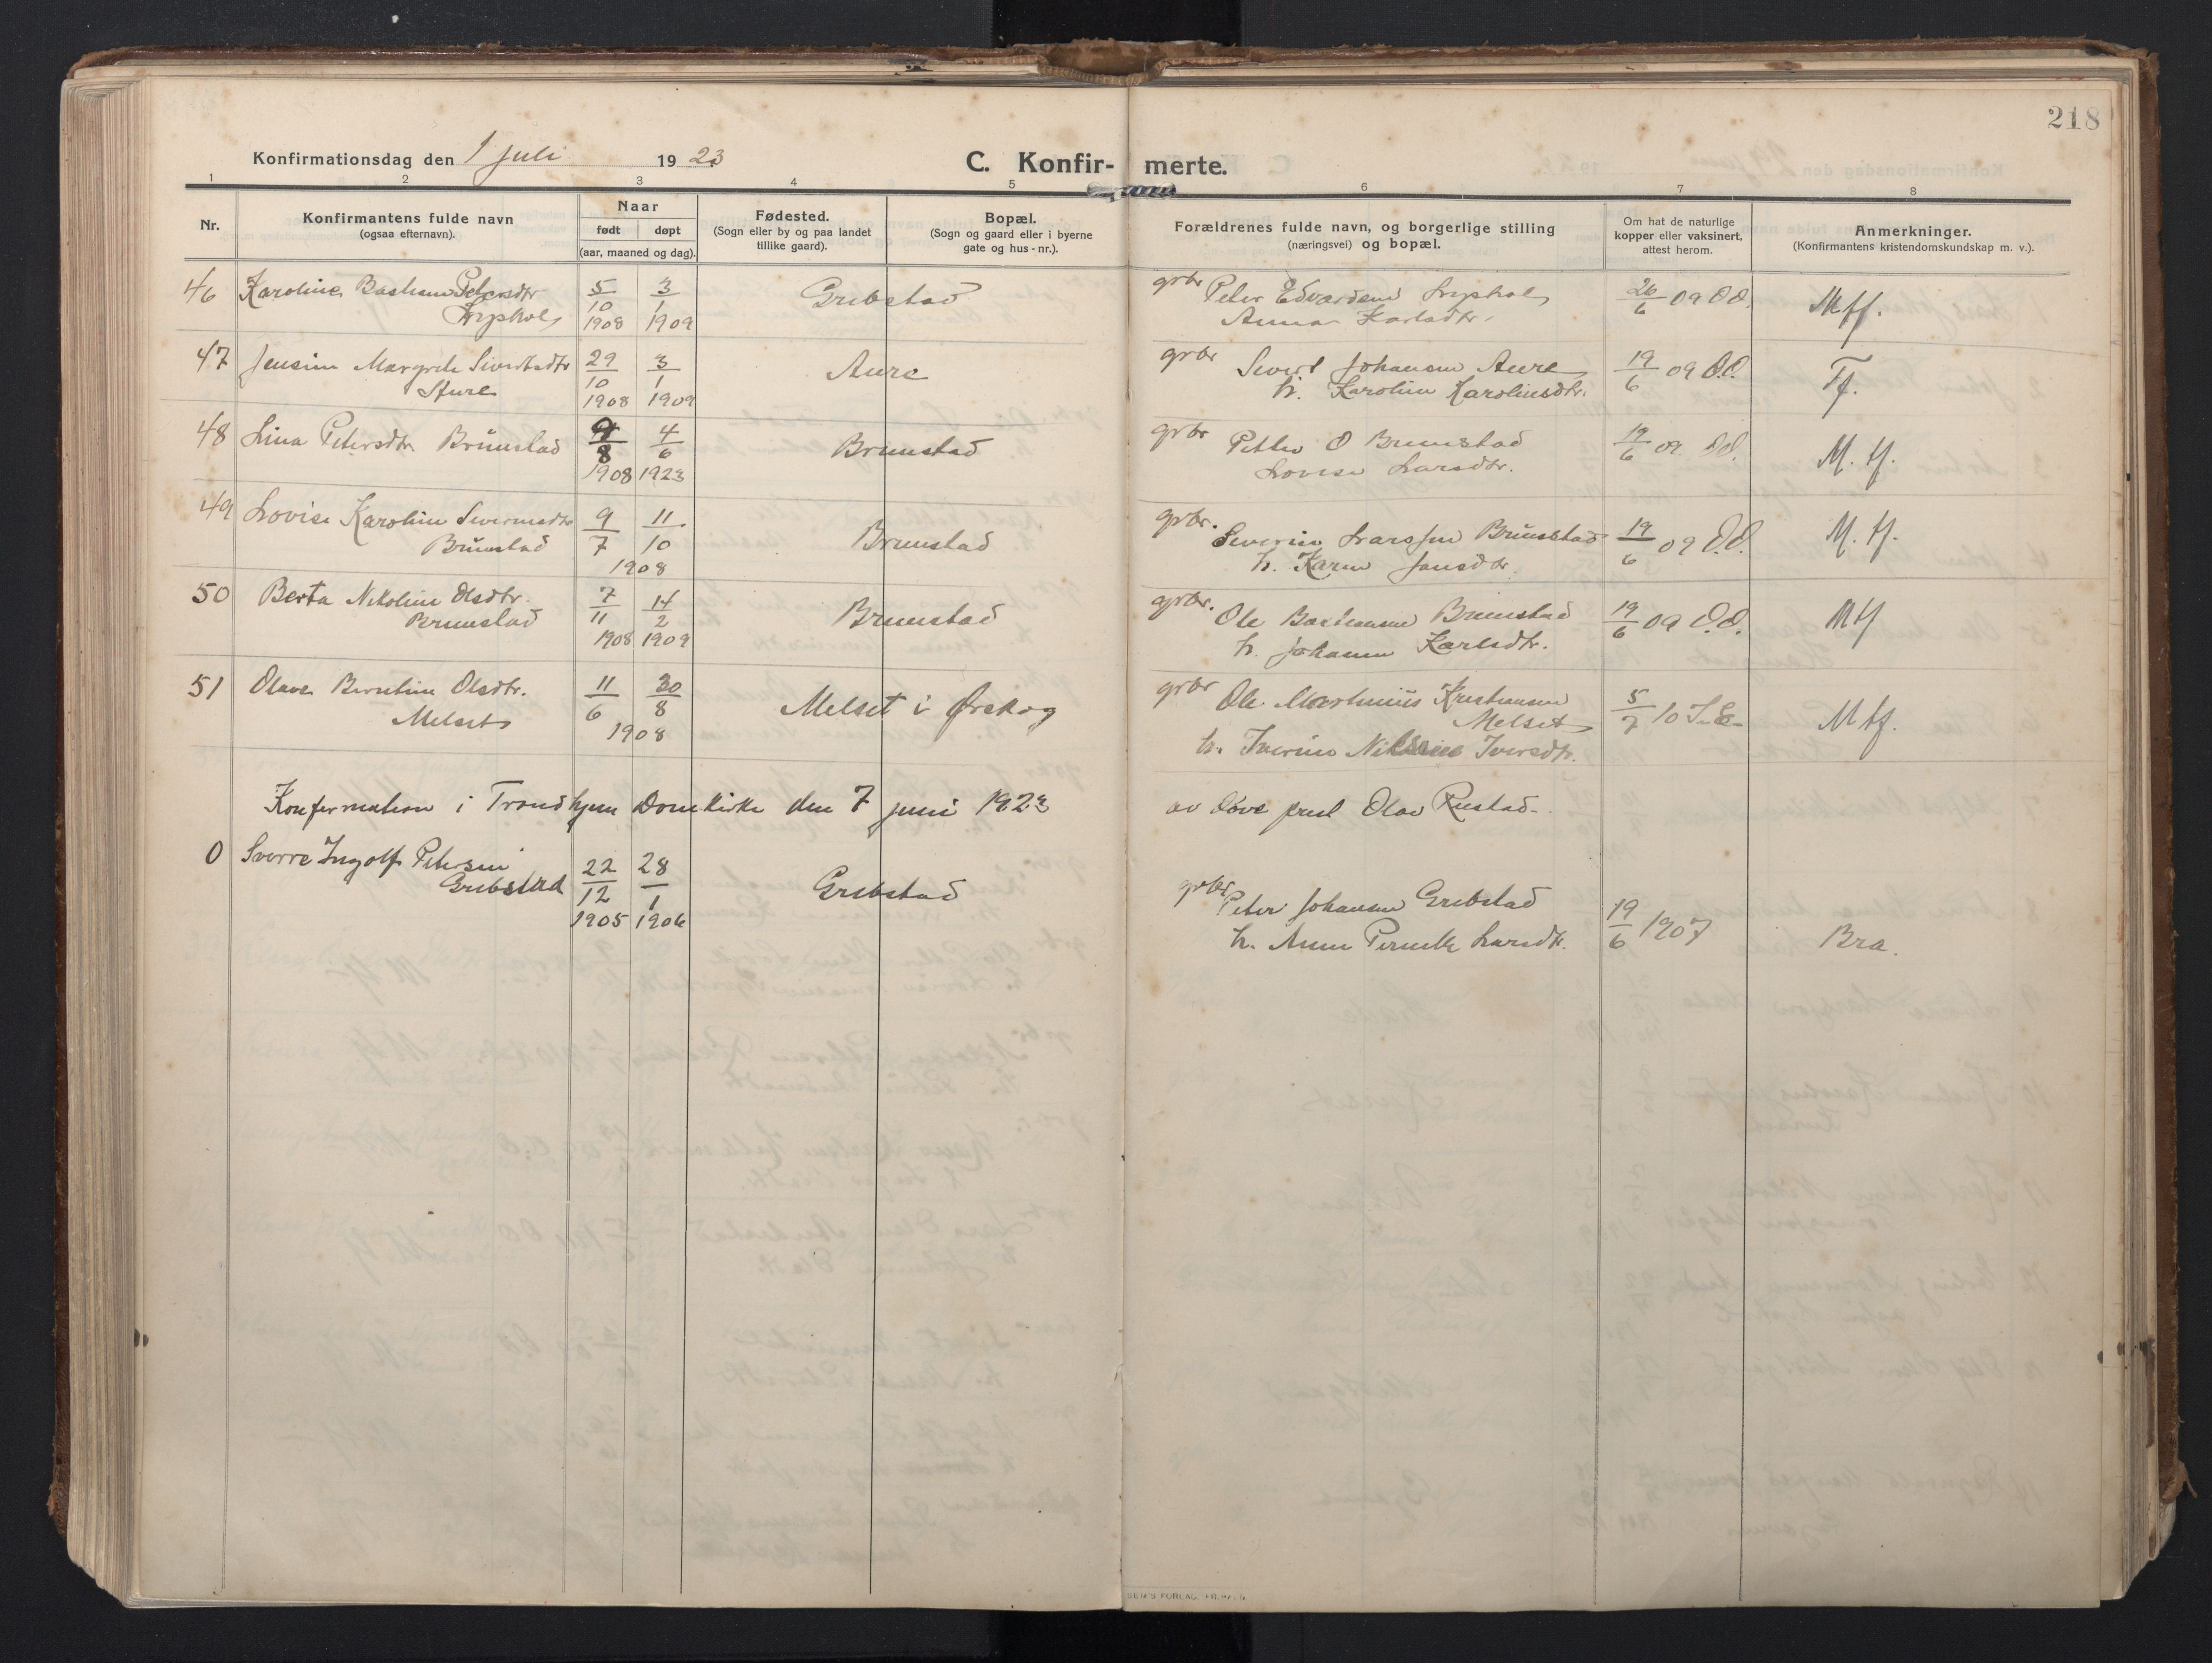 218
Konfirmationsdag den 1 juli 1923
C. Konfirmerte.
1 2 3 4 5 6 7 8
Nr.
Konfirmantens fulde navn
(ogsaa efternavn).
Naar
født døpt
(aar, maaned og dag).
Fødested.
(Sogn eller by og paa landet
tillike gaard).
Bopæl.
(Sogn og gaard eller i byerne
gate og hus-nr.).
Forældrenes fulde navn, og borgerlige stilling
(næringsvei) og bopæl.
Om hat de naturlige
kopper eller vaksinert,
attest herom.
Anmerkninger.
(Konfirmantens kristendomskundskap m. v.).
46 Karoline Petersdtr 5/10 1908 3/1 1909 Grebstad
grbr Peter Edvardsen
Anna Karlsdtr. 26/6 09 O.O. Mtf.
47 Jensine Margrete Sivertsdtr 29/10 1908 3/1 1909 Aure
grbr Sivert Johansen Aure
h. Karoline Karolinsdtr. 19/6 09 O.O. Tf.
48 Lina Petersdtr Brunstad 9/8 1908 4/6 1923 Brunstad
grbr Petter O Brunstad
Lovise Larsdtr. 19/6 09 O.O. M.tf.
49 Lovise Karoline Severinsdtr
Brunstad 9/7 11/10 1908 Brunstad
grbr. Severin Larssen Brunstad
h. Karen Jensdtr. 19/6 09 O.O. M.tf.
50 Berta Nikoline Olsdtr.
Brunstad 7/11 1908 14/2 1909 Brunstad
grbr. Ole Bastiansen Brunstad
h. Johanne Karlsdtr. 19/6 09 O.O. Mtf
51 Olave Berntine Olsdtr.
Melset 11/6 30/8 1908 Melset i Ørskog
grbr Ole Martinius Kristiansen
Melset
h. Iverine Iversdtr. 5/7 10 Mtf.
Konfirmation i Trondhjem Domkirke den 7 juni 1923 av døveprest Olav Rustad.
0 Sverre Ingolf Petersen
Grebstad 22/12 1905 28/1 1906 Grebstad
grbr Peter Johansen Grebstad
h. Anne Pernelle Larsdtr. 19/6 1907 Bra.